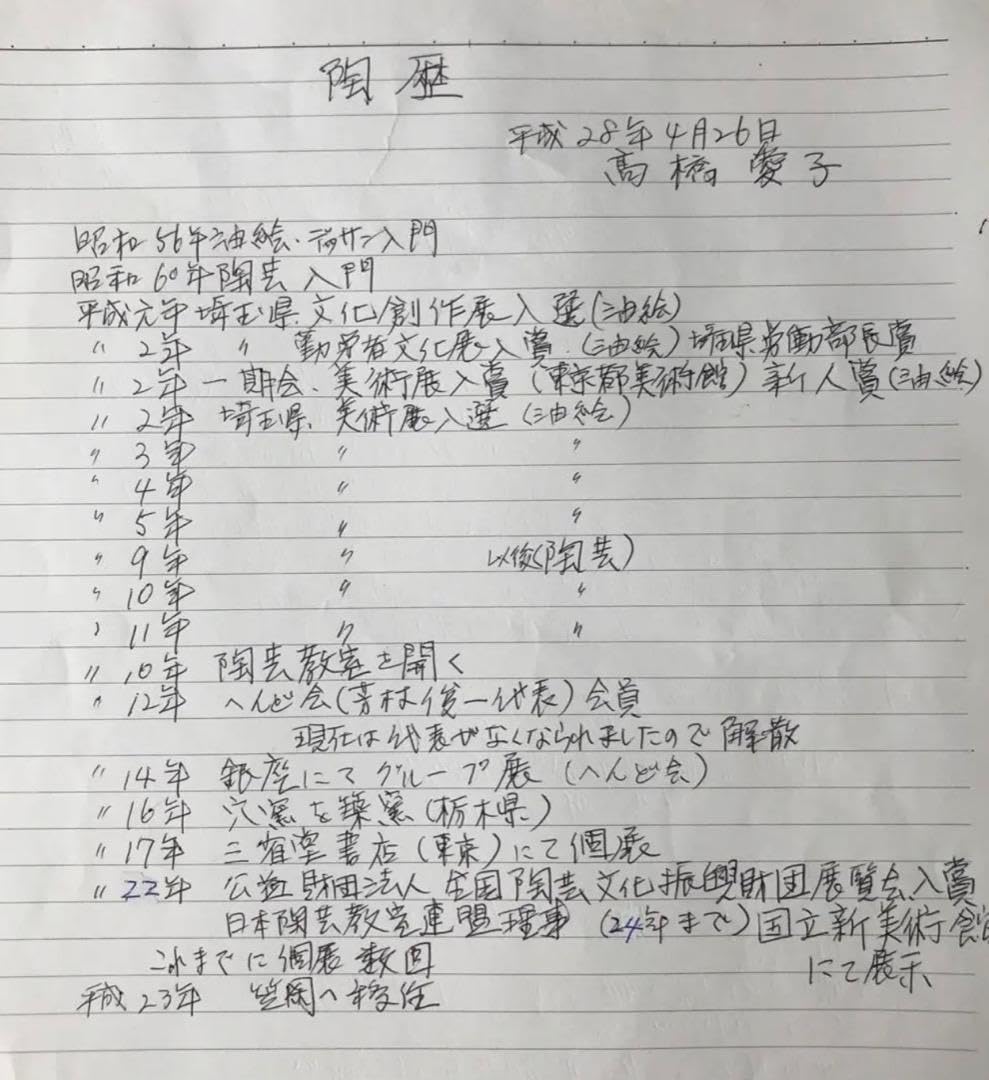 陶歴
平成28年4月26日
高橋愛子
昭和56年油絵.デッサン入門
昭和60年陶芸入門
平成元年埼玉県.文化創作展入選(油絵)
〃2年 〃 勤労者文化展入賞.(油絵)埼玉県労働部長賞
〃2年一期会.美術展入賞(東京都美術館)新人賞(油絵)
〃2年 埼玉県.美術展入選(油絵)
〃3年 〃 〃
〃4年 〃 〃
〃5年 〃 〃
〃9年 〃 以後(陶芸)
〃10年 〃 〃
〃11年 〃 〃
〃10年 陶芸教室を開く
〃12年 へんど会(芳村俊一代表)会員
現在は代表がなくなられましたので解散
〃14年 銀座にてグループ展(へんど会)
〃16年 穴窯を築窯(栃木県)
〃17年 三省堂書店(東京)にて個展
〃22年 公益財団法人 全国陶芸文化振興財団展覧会入賞
日本陶芸教室連盟理事 (24年まで)国立新美術館
にて展示
これまでに個展数回
平成23年 笠間へ移住